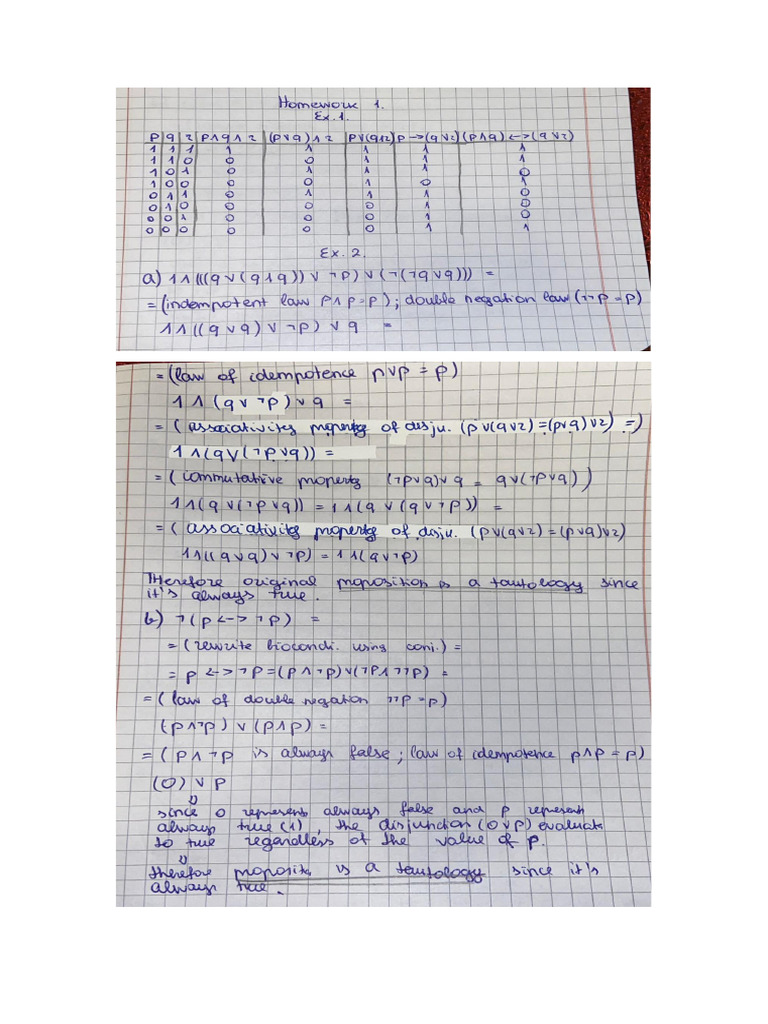 Homework 1.
Ex. 1.
p q r p∧q∧r (p∨q)∧r p∨(q∧r) p→(q∨r) (p∧q)<->(q∨r)
1 1 1 1 1 1 1 1
1 1 0 0 0 1 1 1
1 0 1 0 1 1 1 0
1 0 0 0 0 1 0 1
0 1 1 0 1 1 1 0
0 1 0 0 0 0 1 0
0 0 1 0 0 0 1 0
0 0 0 0 0 0 1 1
Ex. 2.
a) 1∧(((q∨(q∧q))∨¬p)∨(¬(¬q∨q))) =
= (indempotent law p∧p=p); double negation law (¬¬p=p)
1∧((q∨q)∨¬p)∨q =
= (law of idempotence p∨p = p)
1∧(q∨¬p)∨q =
= (associativity property of disju. (p∨(q∨r)=(p∨q)∨r) =)
1∧(q∨(¬p∨q)) =
= (commutative property (¬p∨q)∨q = q∨(¬p∨q))
1∧(q∨(¬p∨q)) = 1∧(q∨(q∨¬p)) =
= (associativity property of disju. (p∨(q∨r)=(p∨q)∨r)
1∧((q∨q)∨¬p) = 1∧(q∨¬p)
Therefore original proposition is a tautology since
it's always true.
b) ¬(p<->¬p) =
= (rewrite biocondi. using conj.) =
= p<->¬p=(p∧¬p)∨(¬p∧¬¬p) =
= (law of double negation ¬¬p=p)
(p∧¬p)∨(p∧p) =
= (p∧¬p is always false; law of idempotence p∧p=p)
(0)∨p
⇓
since 0 represents always false and p represent
always true (1), the disjunction (0∨p) evaluate
to true regardless of the value of p.
⇓
therefore proposite is a tautology since it's
always true.